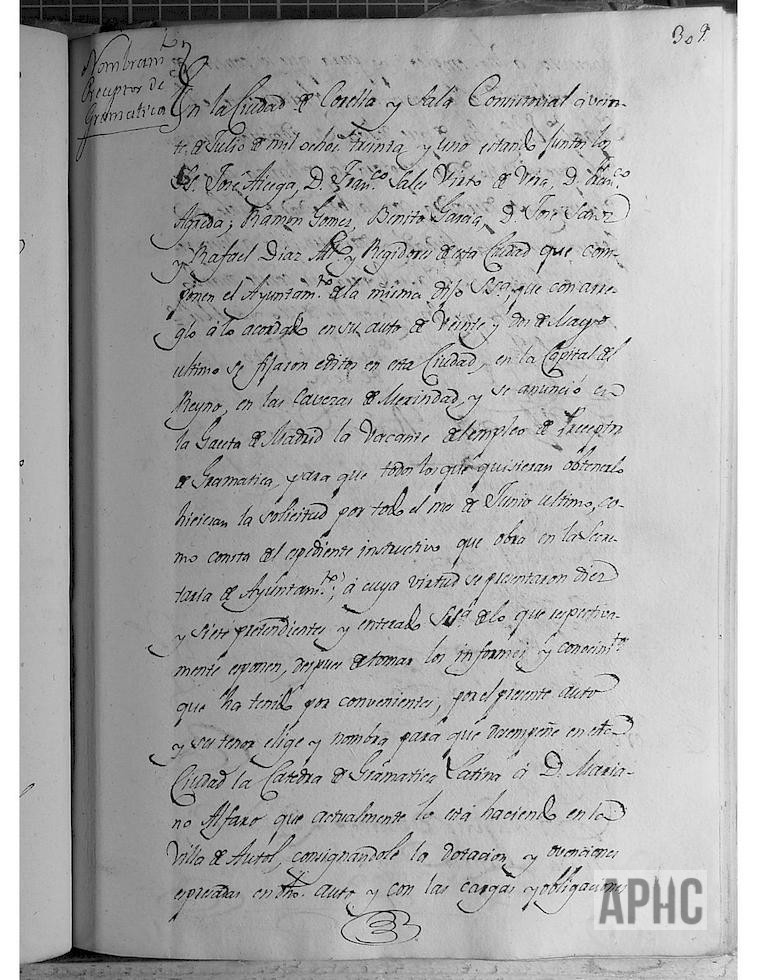 309.
Nombramto
Preceptor de
Gramatica
En la Ciudad de Corella y Sala Consistorial a vein-
te de Julio de mil ochos. treinta y uno estando juntos los
Sres. José Aiega, D. Franco. Sales Virto de Vera, D. Franco.
Agreda, Ramon Gomez, Benito Garcia, D. José Sanz
y Rafael Diaz Ale. y Regidores de esta Ciudad que com-
ponen el Ayuntamto. de la misma dijo Sª. que con arre-
glo a lo acordado en su auto de Veinte y dos de Mayo
ultimo se fijaron editos en esta Ciudad, en la Capital del
Reyno, en las Cavezas de Merindad, y se anunció en
la Gaceta de Madrid la Vacante del empleo de Preceptor
de Gramatica, para que todos los que quisieran obtenerlo
hicieran la solicitud por todo el mes de Junio ultimo, co-
mo consta del epediente instructivo que obra en la Secre-
taria de Ayuntamto., á cuya virtud se presentaron diez
y siete pretendientes y enterado Sª. de lo que respectiva-
mente esponen, despues de tomar los informes y conocimto.
que ha tenido por convenientes, por el presente auto
y su tenor elige y nombra para que desempeñe en esta
Ciudad la Catedra de Gramatica Latina á D. Maria-
no Alfaro que actualmente lo está haciendo en la
Villa de Autol, consignandole la dotacion y ovenciones
espresadas en dho. auto y con las cargas y obligaciones
APHC